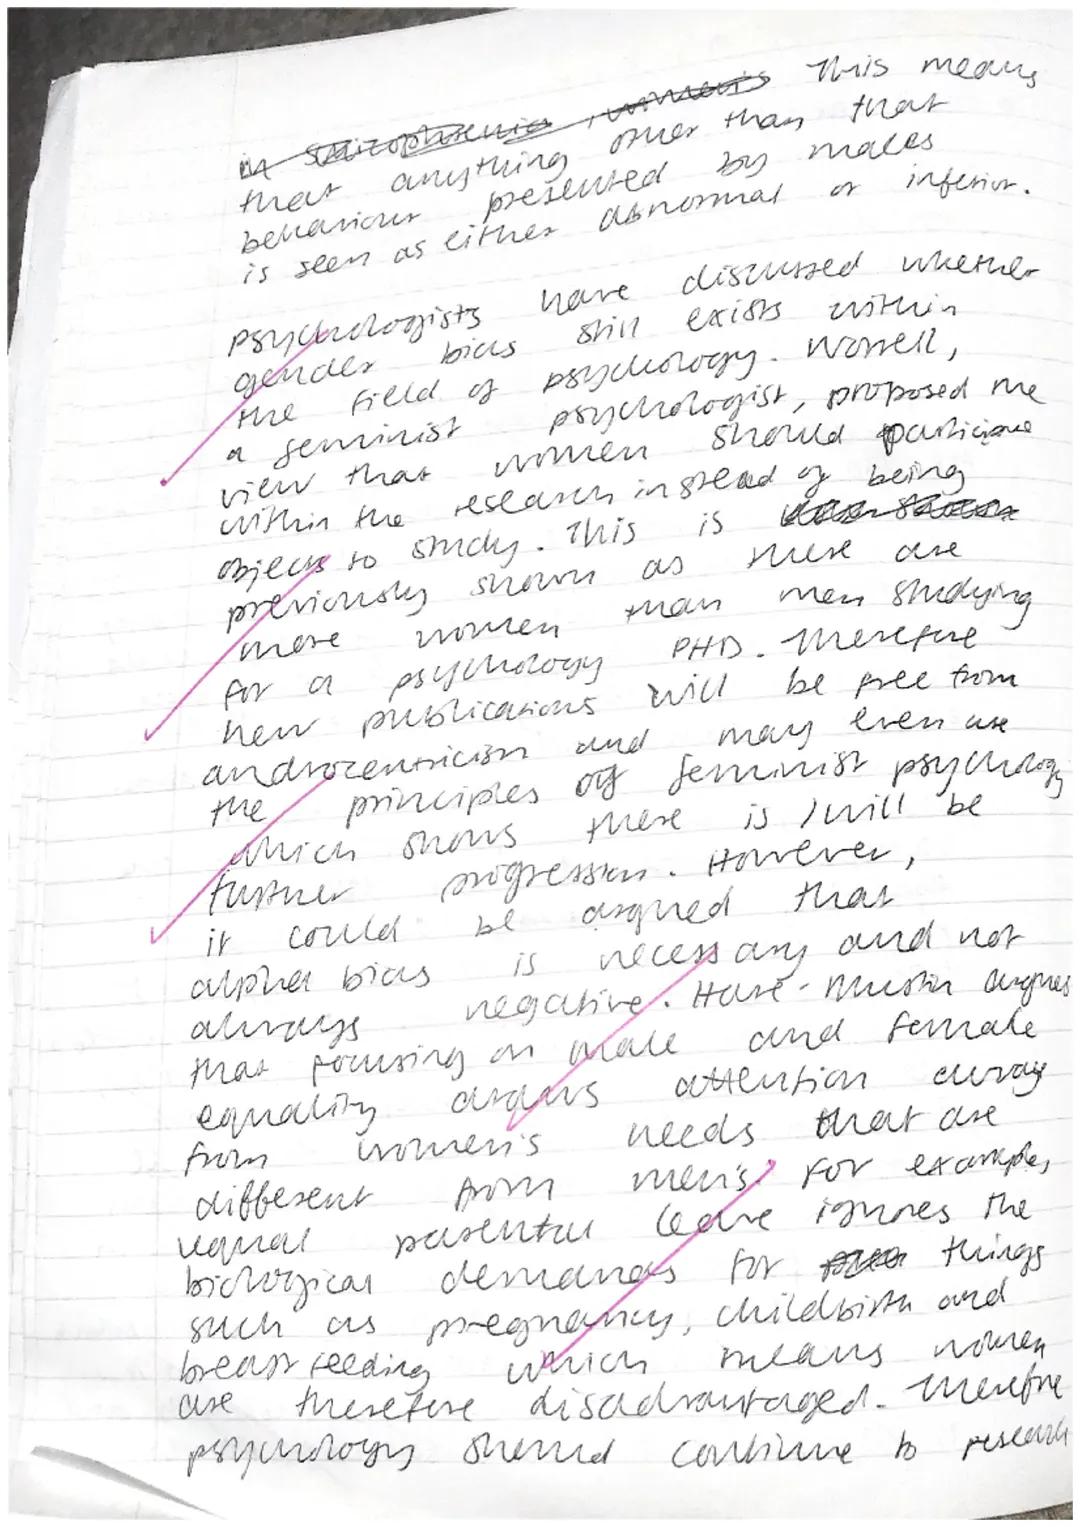 in schizophrenia, women's This means
that anything other than that
behaviour presented by males
is seen as either abnormal or inferior.
psychologists have discussed whether
gender bias still exists within
the field of psychology. Worrell,
a feminist psychologist, proposed the
view that women should participate
within the research instead of being
objects to study. This is
previously shown as there are
more women than men studying
for a psychology PHD. Therefore
new publications will be free from
androcentricism and may even use
the principles of feminist psychology
which shows there is / will be
further progression. However,
it could be argued that
alpha bias is necessary and not
always negative. Hare-Mustin argues
that focusing on male and female
equality draws attention away
from women's needs that are
different from men's. For example,
equal parental leave ignores the
biological demands for things
such as pregnancy, childbirth and
breast feeding which means women
are therefore disadvantaged. Therefore
psychology should continue to research